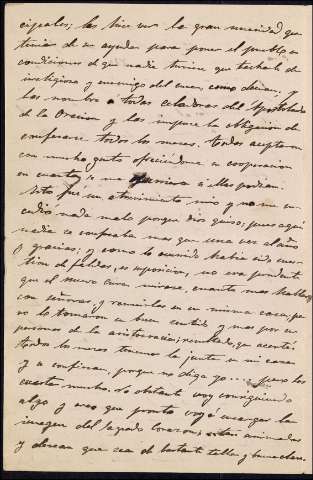 cipales; les hice ver la gran necesidad que
tenia de su ayuda para poner el pueblo en
condiciones de que nadie tuviese que tacharle de
irreligioso y enemigo del cura, como decian, y
las nombré a todas celadoras del Apostolado
de la Oracion y les impuse la obligacion de
confesarse todos los meses. Todas aceptaron
con mucho gusto ofreciendome su cooperacion
en cuanto a ellas podian.
Esto fué un atrevimiento mio y no me su-
cedió nada malo porque Dios quiso; pues aquí
nadie se confesaba mas que una vez al año
y gracias; y como lo ocurrido habia sido cues-
tion de faldas, es suposicion, no era prudente
que el nuevo cura mirase, cuanto mas hablase
con señoras, y reunirlas en su misma casa; pero
no lo tomaron en buen sentido y mas por ser
personas de la aristocracia; resultado, que acerté;
todos los meses tenemos la junta en mi casa
y a confesar, porque no diga yo.... pero les
cuesta mucho. No obstante voy consiguiendo
algo y creo que pronto voy á encargar la
imagen del Sagrado Corazon; estan animadas
y desean que sea de bastante talla y buena clase.